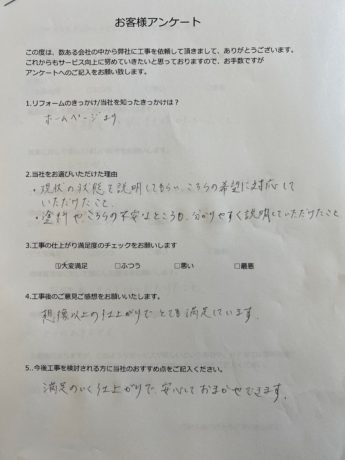 お客様アンケート
この度は、数ある会社の中から弊社に工事を依頼して頂きまして、ありがとうございます。
これからもサービス向上に努めていきたいと思っておりますので、お手数ですが
アンケートへのご記入をお願い致します。
1.リフォームのきっかけ/当社を知ったきっかけは？
ホームページより
2.当社をお選びいただけた理由
・現状の状態を説明してもらい、こちらの希望に対応して
いただけたこと。
・塗料やこちらの不安なところも、分かりやすく説明していただけたこと
3.工事の仕上がり満足度のチェックをお願いします
☑大変満足 □ふつう □悪い □最悪
4.工事後のご意見ご感想をお願いいたします。
想像以上の仕上がりで、とても満足しています。
5..今後工事を検討される方に当社のおすすめ点をご記入ください。
満足のいく仕上がりで、安心しておまかせできます。